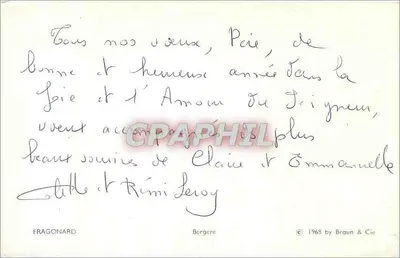 Tous nos vœux, Paix, de
bonne et heureuse année dans la
joie et l'Amour du Seigneur,
vœux accompagnés des plus
beaux sourires de Claire et Emmanuelle
et Rémi Leroy
CPAPHIL
FRAGONARD Bergere © 1965 by Braun & Cie